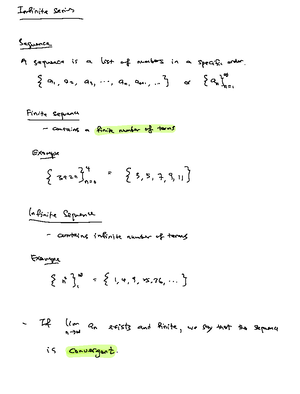 Infinite Series
Sequence
A sequence is a list of numbers in a specific order.
{ a₁, a₂, a₃, ..., aₙ, aₙ₊₁, ... } or {aₙ}ₙ₌₁^∞
Finite Sequence
- contains a finite number of terms
Example
{ 3+2n }ₙ₌₀^4 = { 3, 5, 7, 9, 11 }
Infinite Sequence
- contains infinite number of terms
Example
{ n² }₁^∞ = { 1, 4, 9, 25, 36, ... }
- If lim n→∞ aₙ exists and finite, we say that the sequence
is convergent.